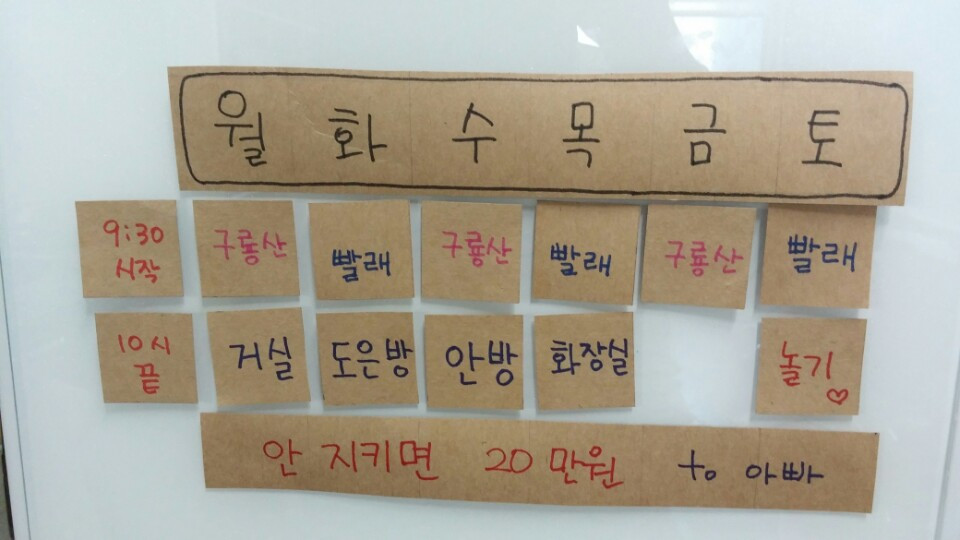 월 화 수 목 금 토
9:30 시작 구룡산 빨래 구룡산 빨래 구룡산 빨래
10시 끝 거실 도은방 안방 화장실 놀기♡
안 지키면 20만원 to 아빠